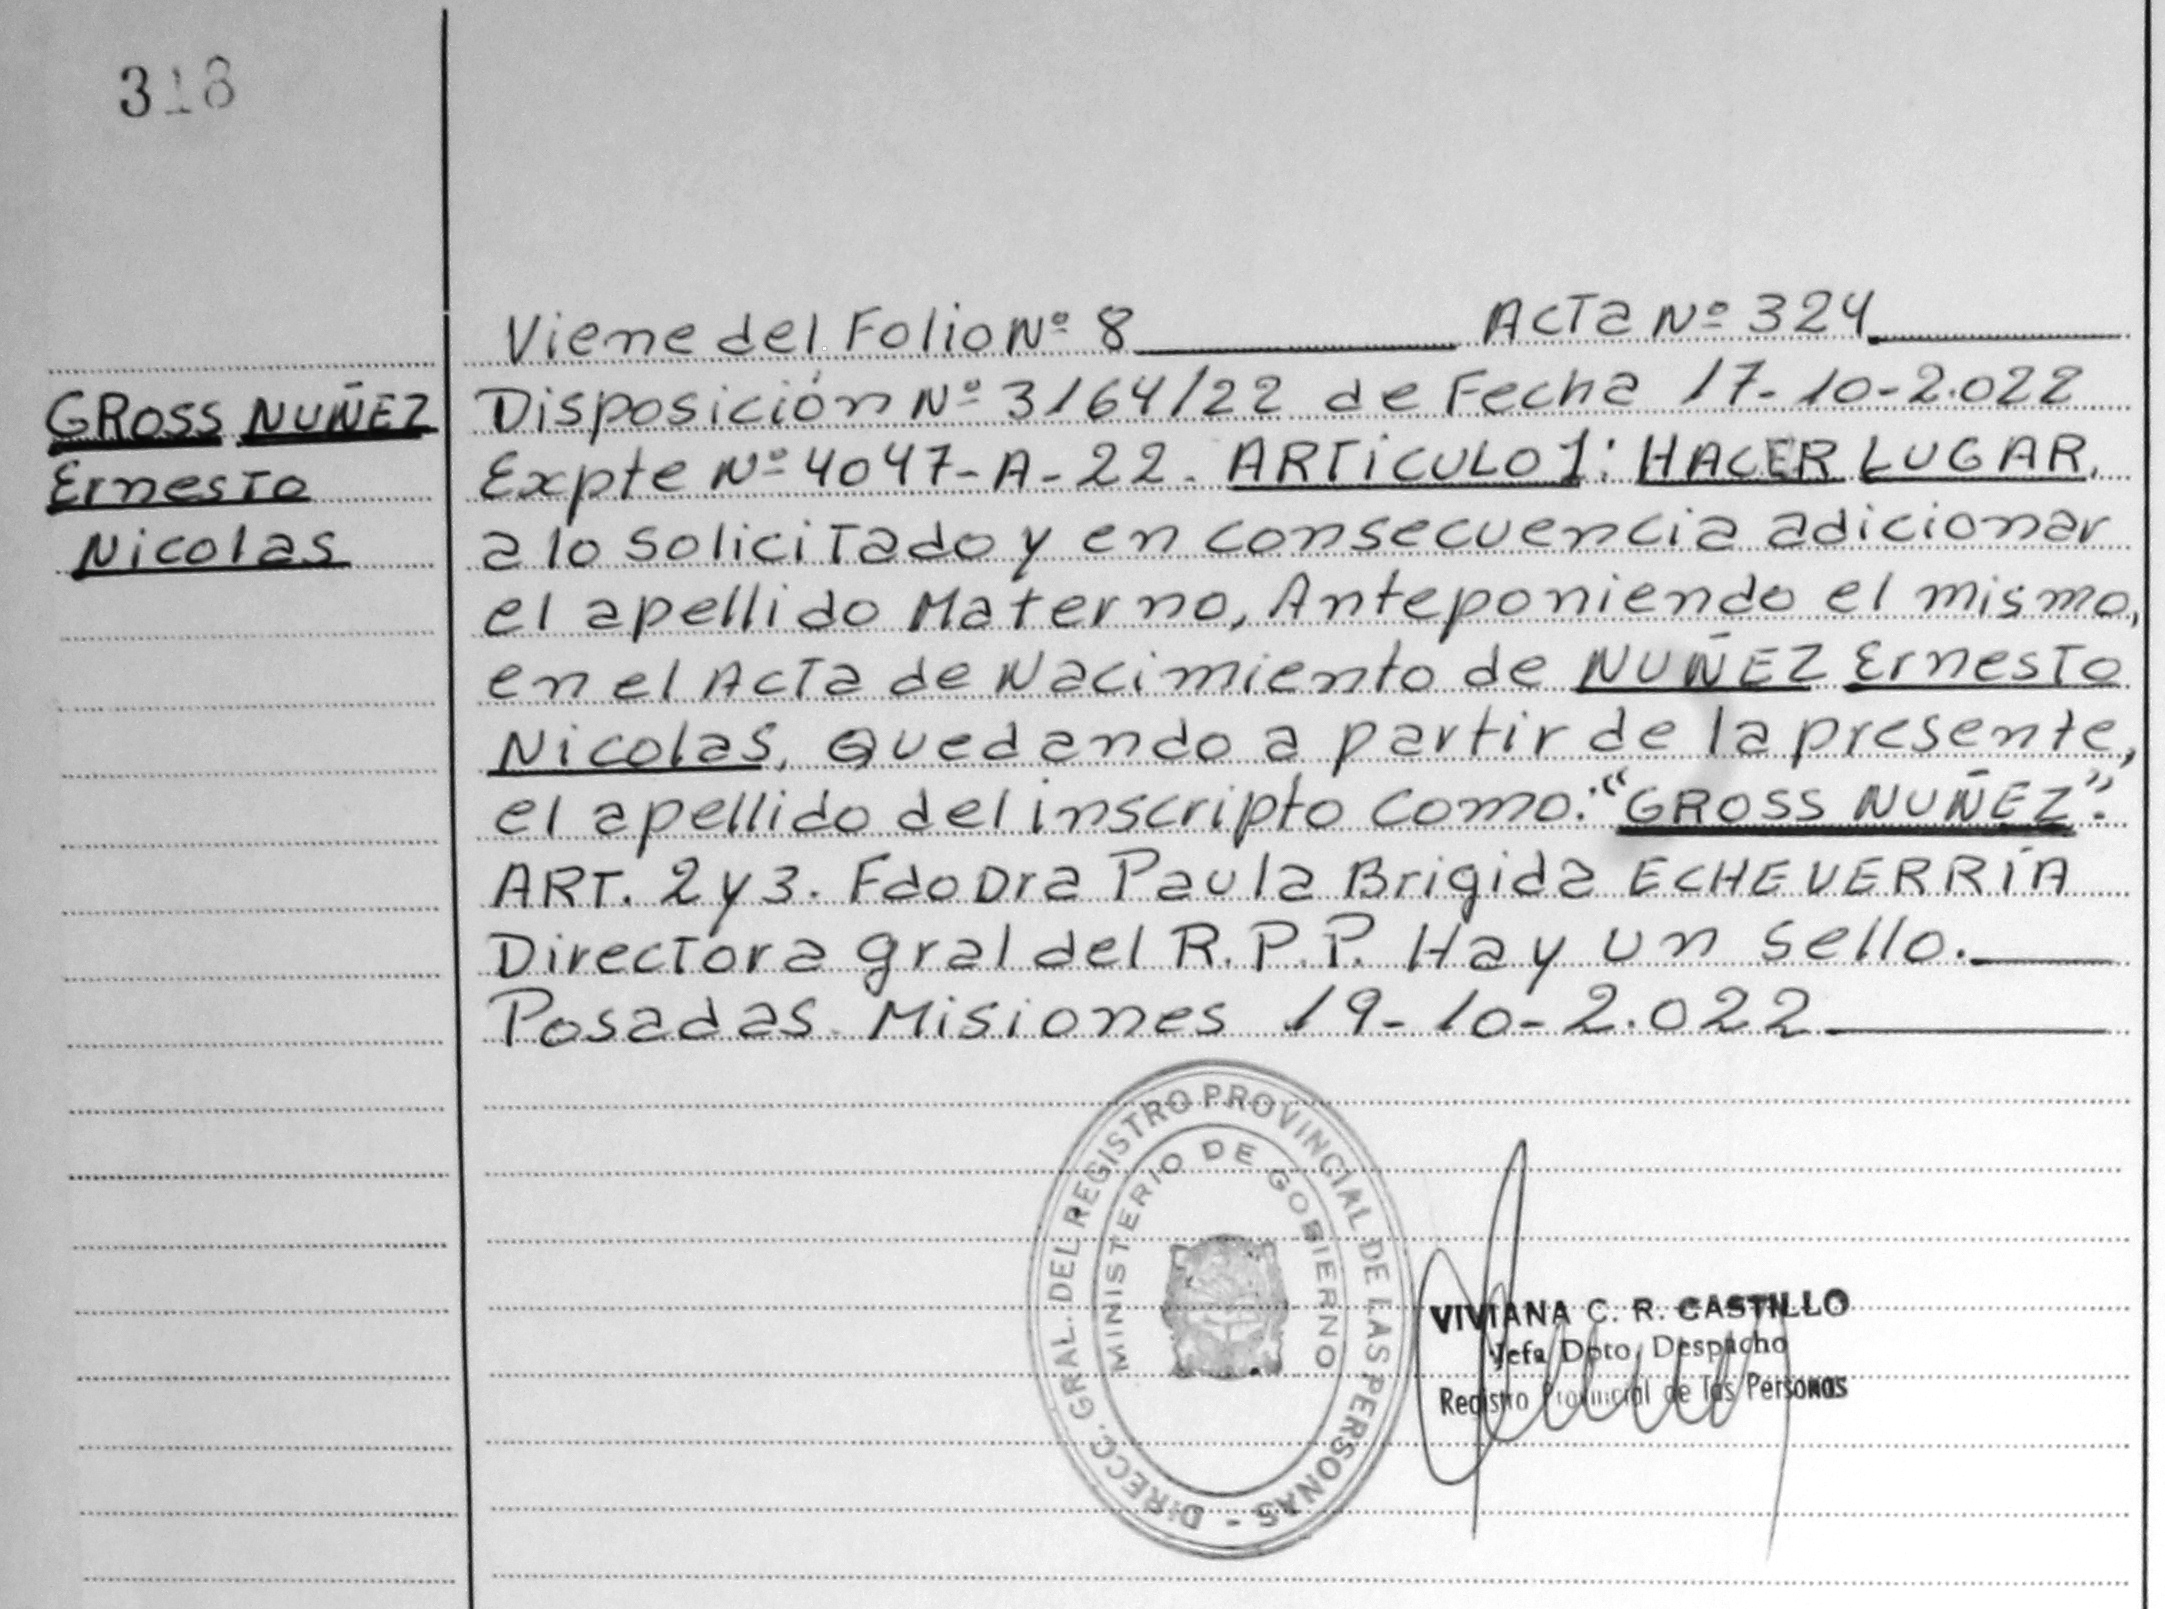 318
Viene del Folio Nº 8 Acta Nº 324
GROSS NUÑEZ
Ernesto
Nicolas
Disposición Nº 3164/22 de Fecha 17-10-2.022
Expte Nº 4047-A-22. ARTÍCULO 1: HACER LUGAR,
a lo solicitado y en consecuencia adicionar
el apellido Materno, Anteponiendo el mismo,
en el Acta de Nacimiento de NUÑEZ Ernesto
Nicolas, Quedando a partir de la presente,
el apellido del inscripto como: "GROSS NUÑEZ".
ART. 2 y 3. Fdo Dra Paula Brigida ECHEVERRÍA
Directora gral del R.P.P. Hay un sello.
Posadas Misiones 19-10-2.022
DIRECC. GRAL. DEL REGISTRO PROVINCIAL DE LAS PERSONAS -
MINISTERIO DE GOBIERNO
VIVIANA C. R. CASTILLO
Jefa Dpto. Despacho
Registro Provincial de las Personas